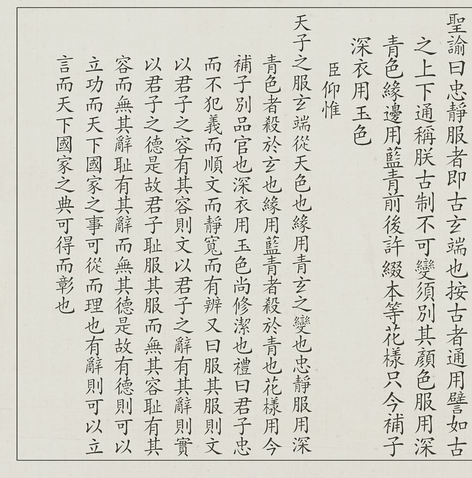 聖諭曰忠靜服者即古玄端也按古者通用譬如古
之上下通稱朕古制不可變須別其顏色服用深
青色緣邊用藍青前後許綴本等花樣只今補子
深衣用玉色
臣仰惟
天子之服玄端從天色也緣用青玄之變也忠靜服用深
青色者殺於玄也緣用藍青者殺於青也花樣用今
補子別品官也深衣用玉色尚修潔也禮曰君子忠
而不犯義而順文而靜寬而有辨又曰服其服則文
以君子之容有其容則文以君子之辭有其辭則實
以君子之德是故君子恥服其服而無其容恥有其
容而無其辭耻有其辭而無其德是故有德則可以
立功而天下國家之事可從而理也有辭則可以立
言而天下國家之典可得而彰也